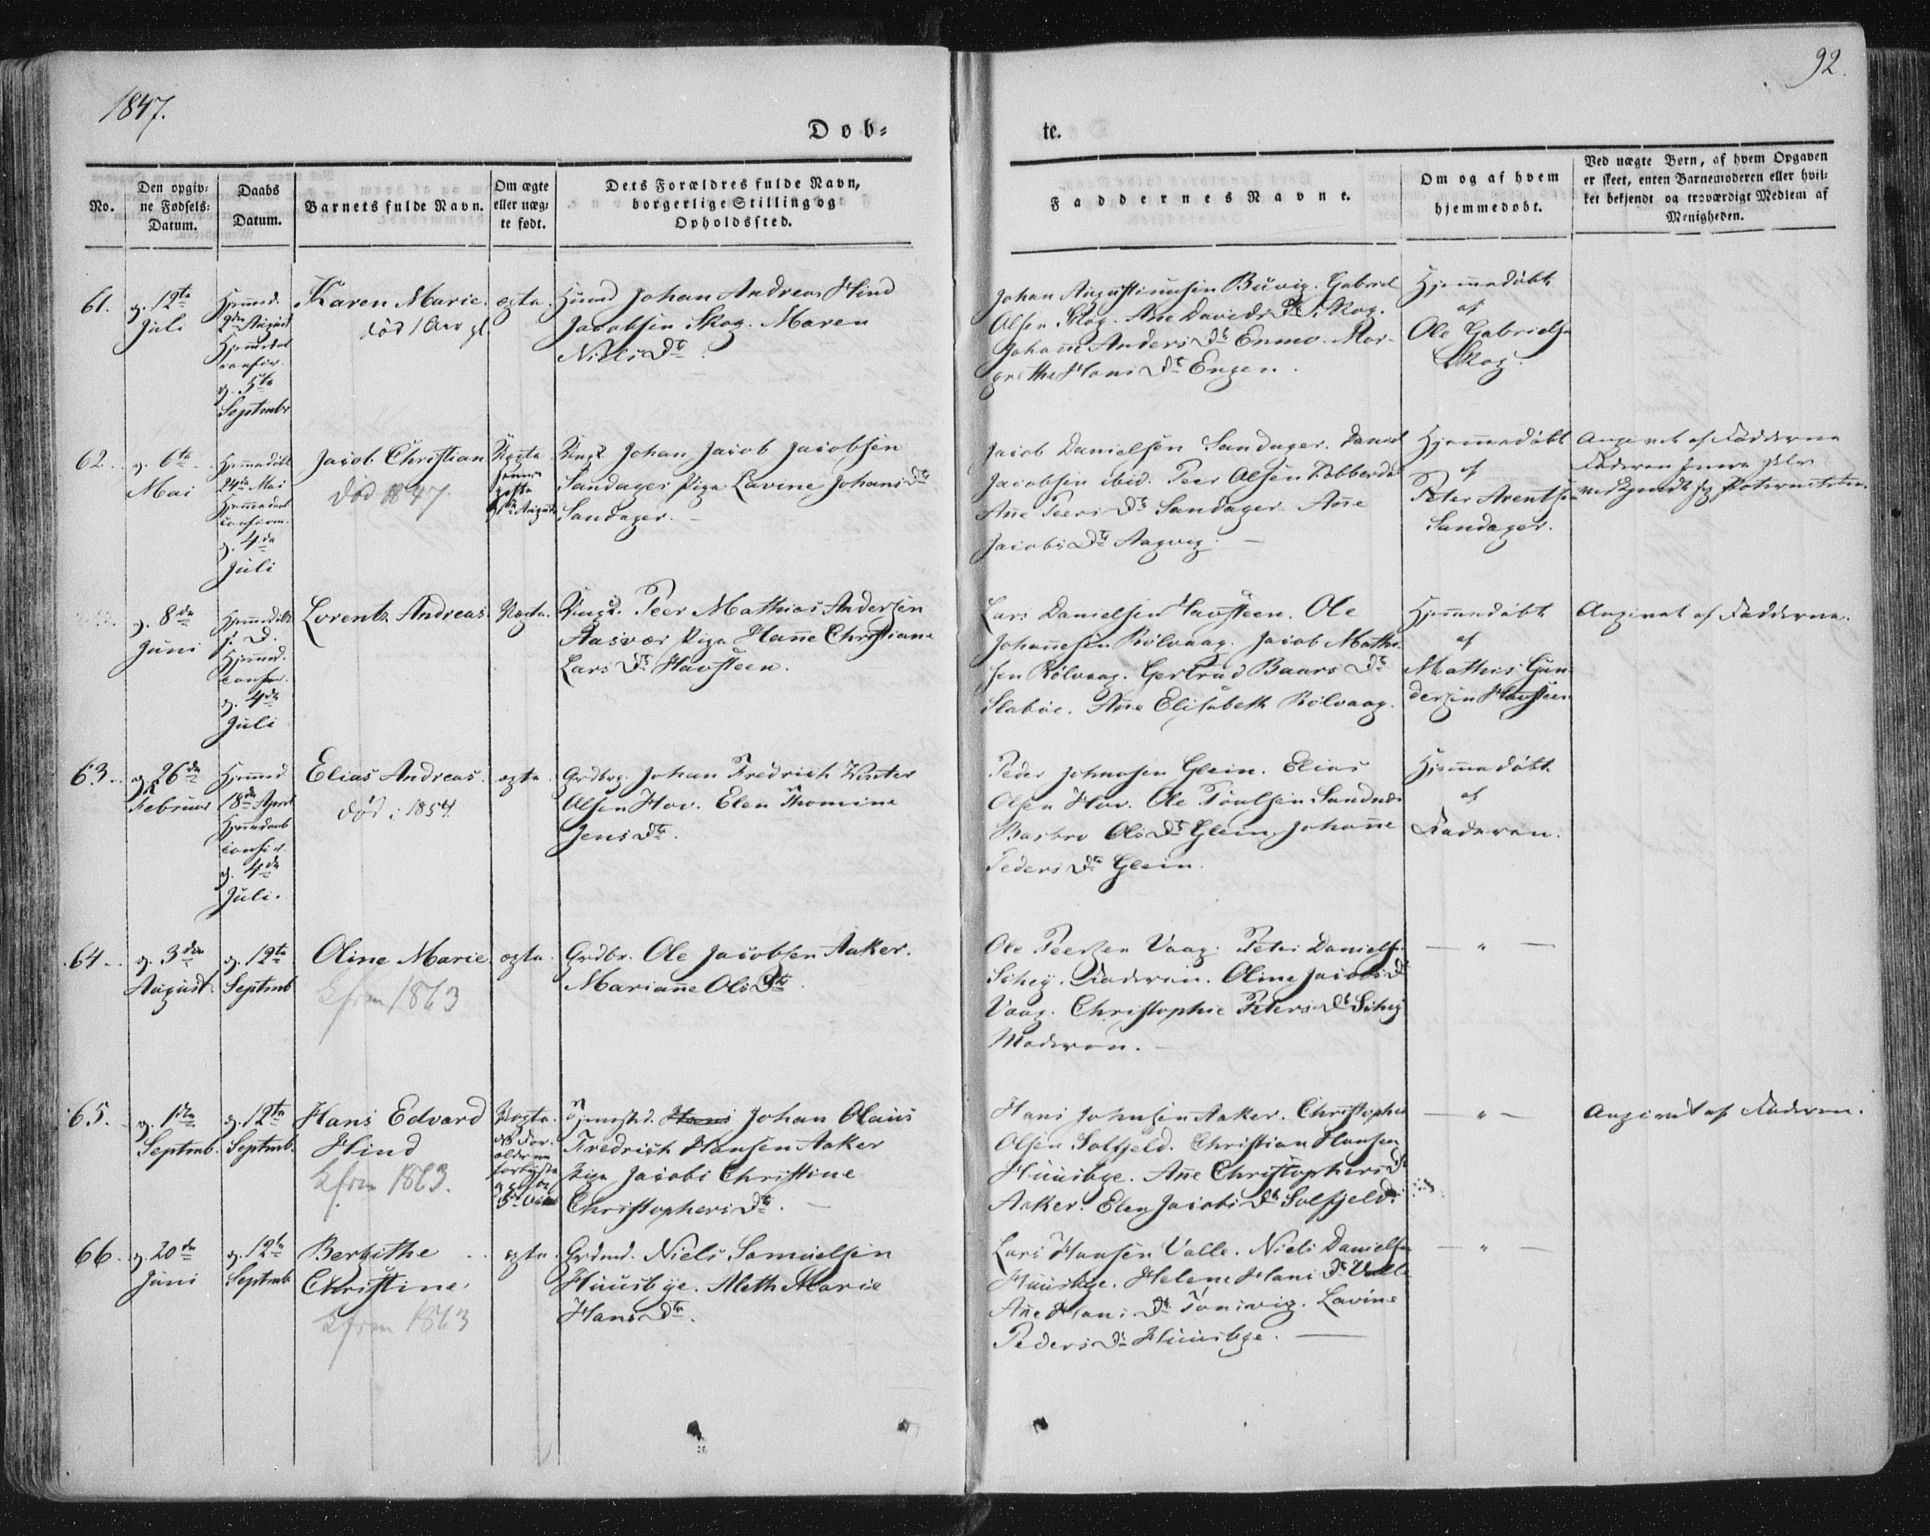 1847.
92.
Dob-
te.
No.
Den opgiv-
ne Fødsels-
Datum.
Daabs
Datum.
Barnets fulde Navn.
Om ægte
eller uæg-
te født.
Dets Forældres fulde Navn,
borgerlige Stilling og
Opholdssted.
Faddernes Navne.
Om og af hvem
hjemmedøbt.
Ved uægte Børn, af hvem Opgaven
er skeet, enten Barnemoderen eller hvil-
ket bekjendt og troværdigt Medlem af
Menigheden.
61.
d. 12te
Juli
Hjemmed.
2den August
d. 5te
Septmbr
Karen Marie.
død
ægte.
Huusmd Johan Andreas Hind
Jacobsen Skog. Maren
Niels Dtr.
Johan Augustinusen Buvig. Gabriel
Olsen Skog. Ane Davids Dtr Skog.
Johanne Anders Dtr Enmo. Mar-
grethe Hans Dtr Engen.
Hjemmedøbt
af
Ole Gabrielsen
Skog.
62.
d. 6te
Mai
Hjemmedøbt
24de Mai
d. 4de
Juli
Jacob Christian
død 1847.
Uægte
Ungk. Johan Jacob Jacobsen
Sandager Pige Lavine Johans Dtr
Sandager.
Jacob Danielsen Sandager. Daniel
Jacobsen ibid. Peer Olsen Kobberdal
Ane Peers Dtr Sandager. Ane
Jacobs Dtr Aagvig.
Hjemmedøbt
af
Peter Arentsen
Sandager.
Angivet af Fadderne
d. 8de
Juni
Hjemmedøbt
s. D.
Hjemmed.
confir.
d. 4de
Juli
Lorents Andreas
Uægte.
Ungk. Peer Mathias Andersen
Aasvær Pige Hanne Christiane
Lars Dtr Havsteen.
Lars Danielsen Havsteen. Ole
Johannesen Rølvaag. Jacob Mathi-
sen Rølvaag. Gertrud Baars Dtr
Slabøe. Ane Elisabeth Rølvaag.
Hjemmedøbt
af
Mathis Gun-
dersen Havsteen
Angivet af Fadderne.
63.
d. 26de
Februar
Hjemmed.
18de April
d. 4de
Juli.
Elias Andreas.
død i 1854
ægte.
Grdbrg. Johan Fredrich Winter
Olsen Hov. Elen Thomine
Jens Dtr.
Peder Johnsen Glein. Elias
Olsen Hov. Ole Poulsen Sandnæs
Barbro Ols Dtr Glein, Johanne
Peders Dtr Glein.
Hjemmedøbt
af
Faderen.
64.
d. 3die
August.
d. 12te
Septmb
Oline Marie
kfirm 1863
ægte.
Grdbr. Ole Jacobsen Aaker.
Mariane Ols Dtr.
Ole Peersen Vaag. Peter Danielsen
Schey. Faderen. Oline Jacobs Dtr
Vaag. Christophie Peters Dtr Schey
Moderen.
— " —
65.
d. 1ste
Septmb.
d. 12te
Septmb.
Hans Edvard
Hind
kfirm 1863.
Uægte.
Tjenestd. Hans Johan Olaus
Fredrich Hansen Aaker
Pige Jacobs Christine
Christophers Dtr.
Hans Johnsen Aaker. Christopher
Olsen Solfjeld. Christian Hansen
Huusbye. Ane Christophers Dtr
Aaker. Elen Jacobs Dtr Solfjeld.
— " —
Angivet af Faderen.
66.
d. 20de
Juni
d. 12te
Septmb
Bergithe
Christine.
kfirm 1863
ægte.
Grdmd. Niels Samuelsen
Huusbye. Aleth Marie
Hans Dtr.
Lars Hansen Valle. Niels Danielsen
Huusbye. Helene Hans Dtr Valle
Ane Hans Dtr Tonivig. Lavine
Peders Dtr Huusbye.
— " —